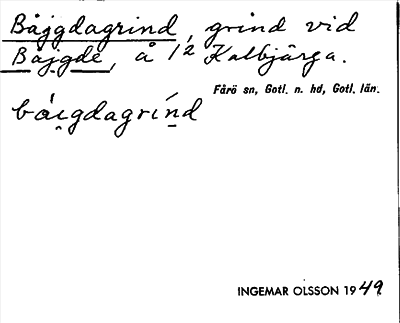 Båjgdagrind, grind vid
Båjgde, å 1/2 Kalbjärga.
Fårö sn, Gotl. n. hd, Gotl. län.
båi̯gdagrín̯d
INGEMAR OLSSON 1949